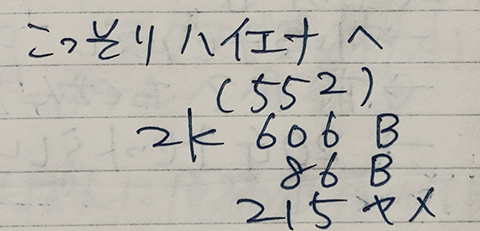 こっそりハイエナへ
(552)
2K 606 B
86 B
215 ヤメ